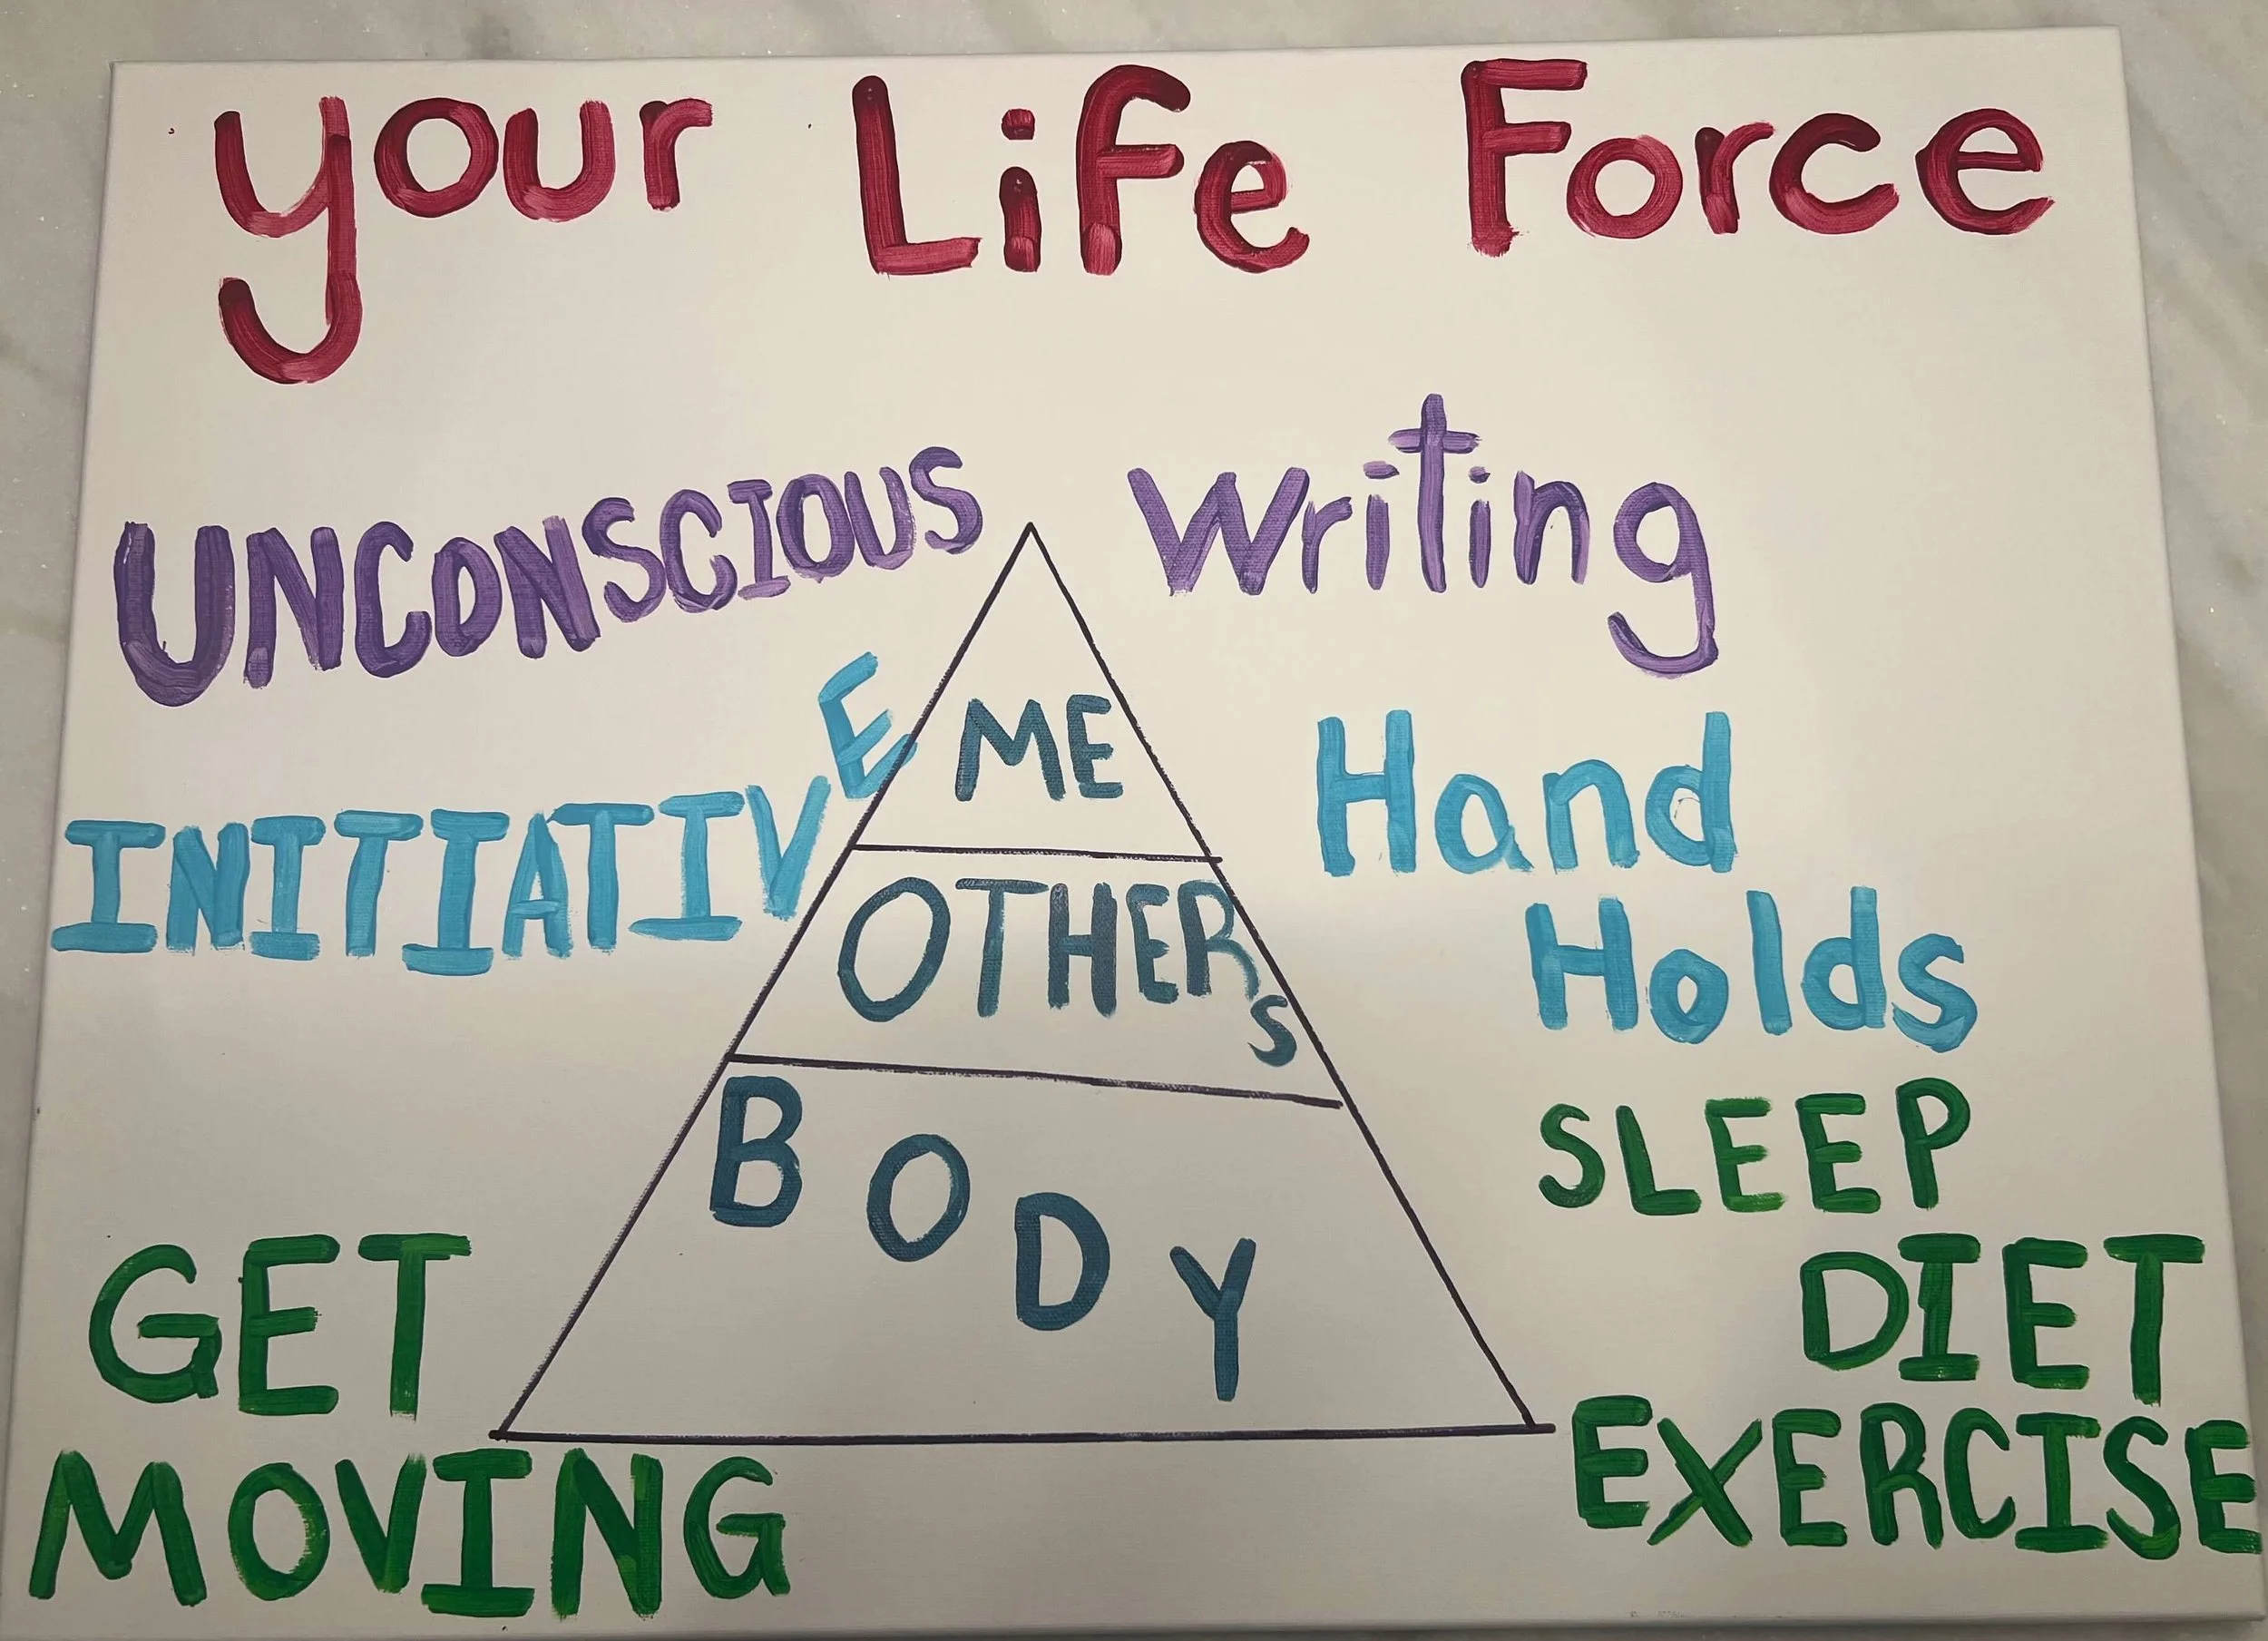 your Life Force
UNCONSCIOUS
Writing
INITIATIVE
ME
Hand
Holds
OTHERS
BODY
SLEEP
DIET
EXERCISE
GET
MOVING